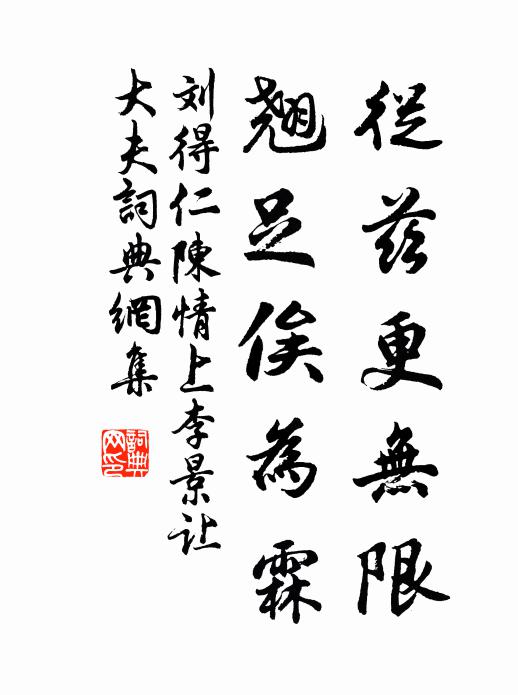 從茲更無限
翹足俟為霖
刘得仁陳情上李景让
大夫詞典網集
詞典
网印